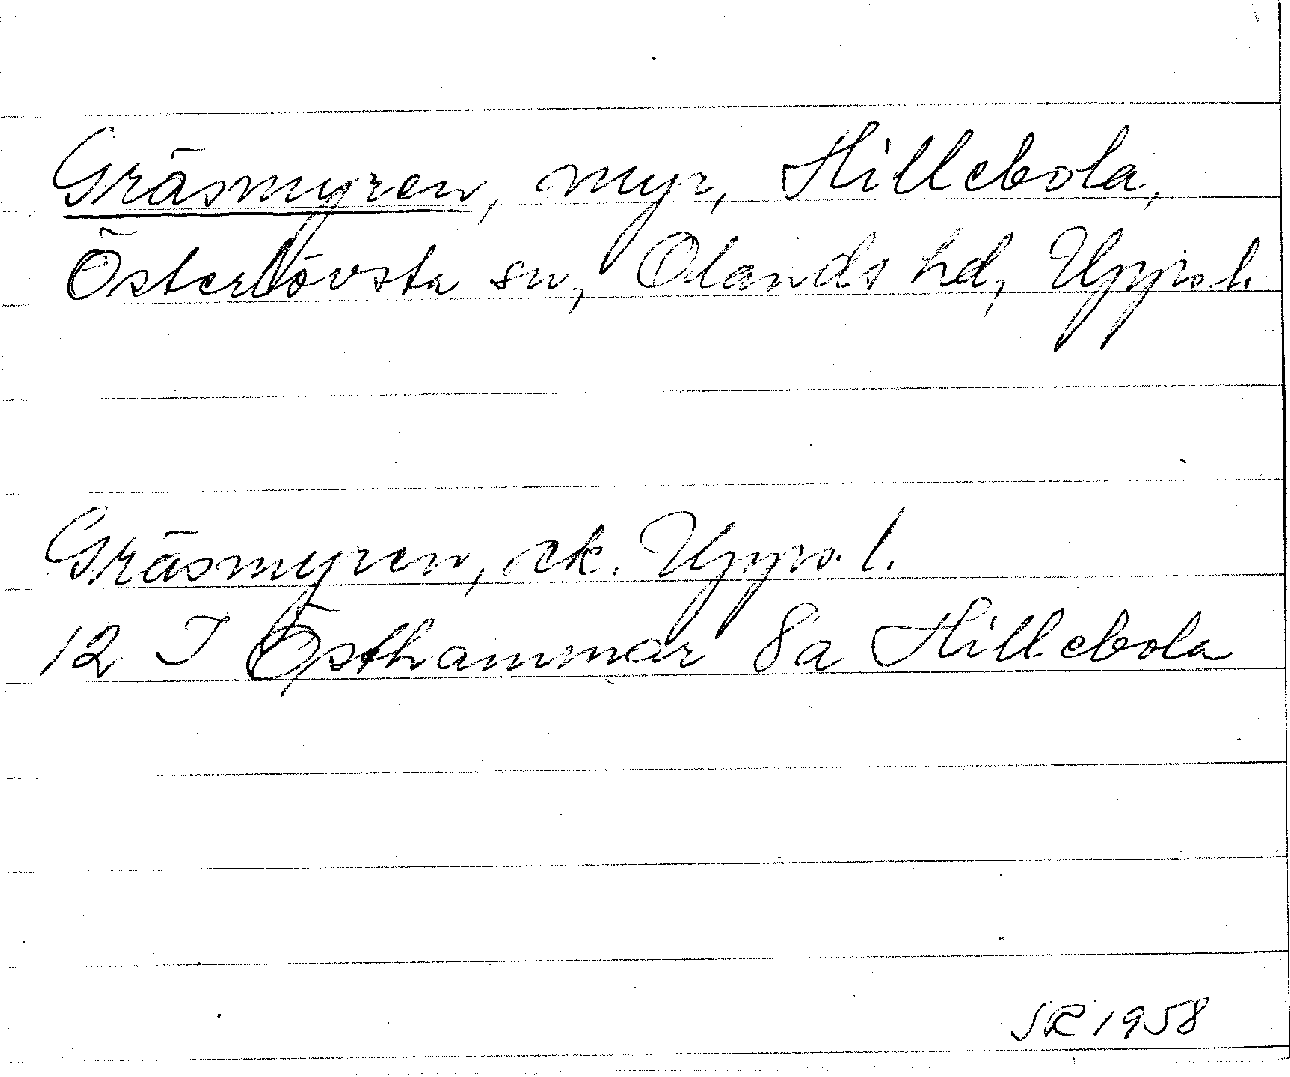 Gräsmyren, myr, Hillebola,
Österlövsta sn, Olands hd, Upps l.
Gräsmyren, ek. Upps. l.
12 I Östhammar 8a Hillebola
SR 1958